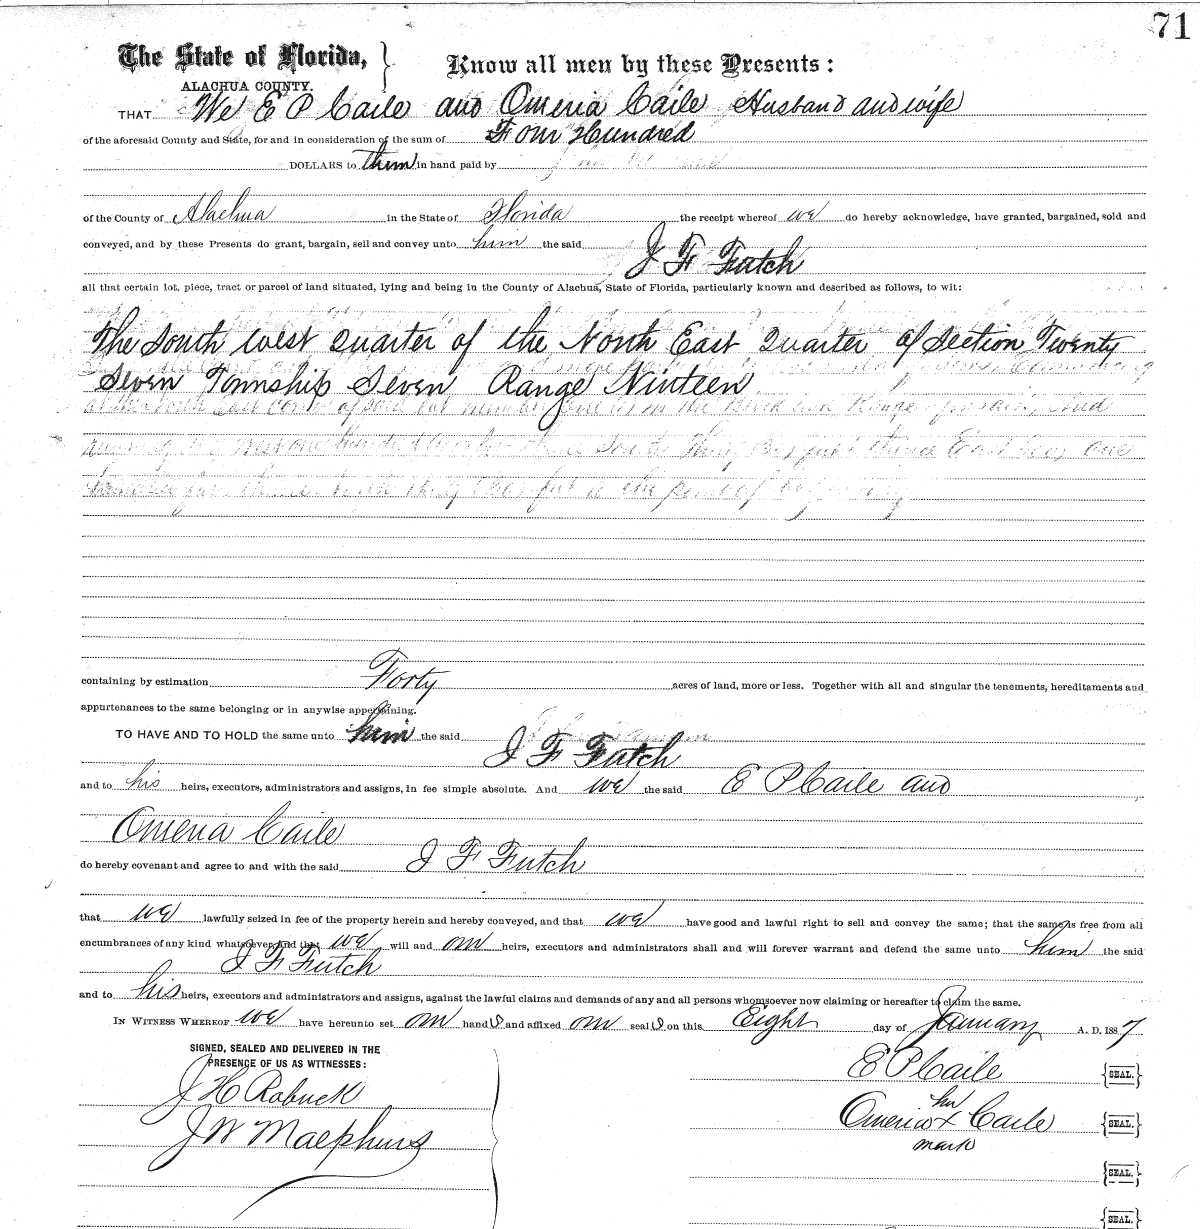 71
The State of Florida,
ALACHUA COUNTY.
Know all men by these Presents:
THAT We E P Caile and Omeria Caile Husband and wife
of the aforesaid County and State, for and in consideration of the sum of Four Hundred
DOLLARS to them in hand paid by
of the County of Alachua in the State of Florida the receipt whereof we do hereby acknowledge, have granted, bargained, sold and
conveyed, and by these Presents do grant, bargain, sell and convey unto him the said
J F Futch
all that certain lot, piece, tract or parcel of land situated, lying and being in the County of Alachua, State of Florida, particularly known and described as follows, to wit:
The South west Quarter of the North East Quarter of Section Twenty
Seven Township Seven Range Ninteen
containing by estimation Forty acres of land, more or less. Together with all and singular the tenements, hereditaments and
appurtenances to the same belonging or in anywise appertaining.
TO HAVE AND TO HOLD the same unto him the said
J F Futch
and to his heirs, executors, administrators and assigns, in fee simple absolute. And we the said E P Caile and
Omeria Caile
do hereby covenant and agree to and with the said J F Futch
that we lawfully seized in fee of the property herein and hereby conveyed, and that we have good and lawful right to sell and convey the same; that the same is free from all
encumbrances of any kind whatsoever, and that we will and our heirs, executors and administrators shall and will forever warrant and defend the same unto him the said
J F Futch
and to his heirs, executors and administrators and assigns, against the lawful claims and demands of any and all persons whomsoever now claiming or hereafter to claim the same.
IN WITNESS WHEREOF we have hereunto set our hands and affixed our seals on this Eight day of January A. D. 1887
SIGNED, SEALED AND DELIVERED IN THE
PRESENCE OF US AS WITNESSES:
E P Caile {SEAL.}
J H Rabuck
her
Omeria x Caile {SEAL.}
mark
J W
{SEAL.}
{SEAL.}